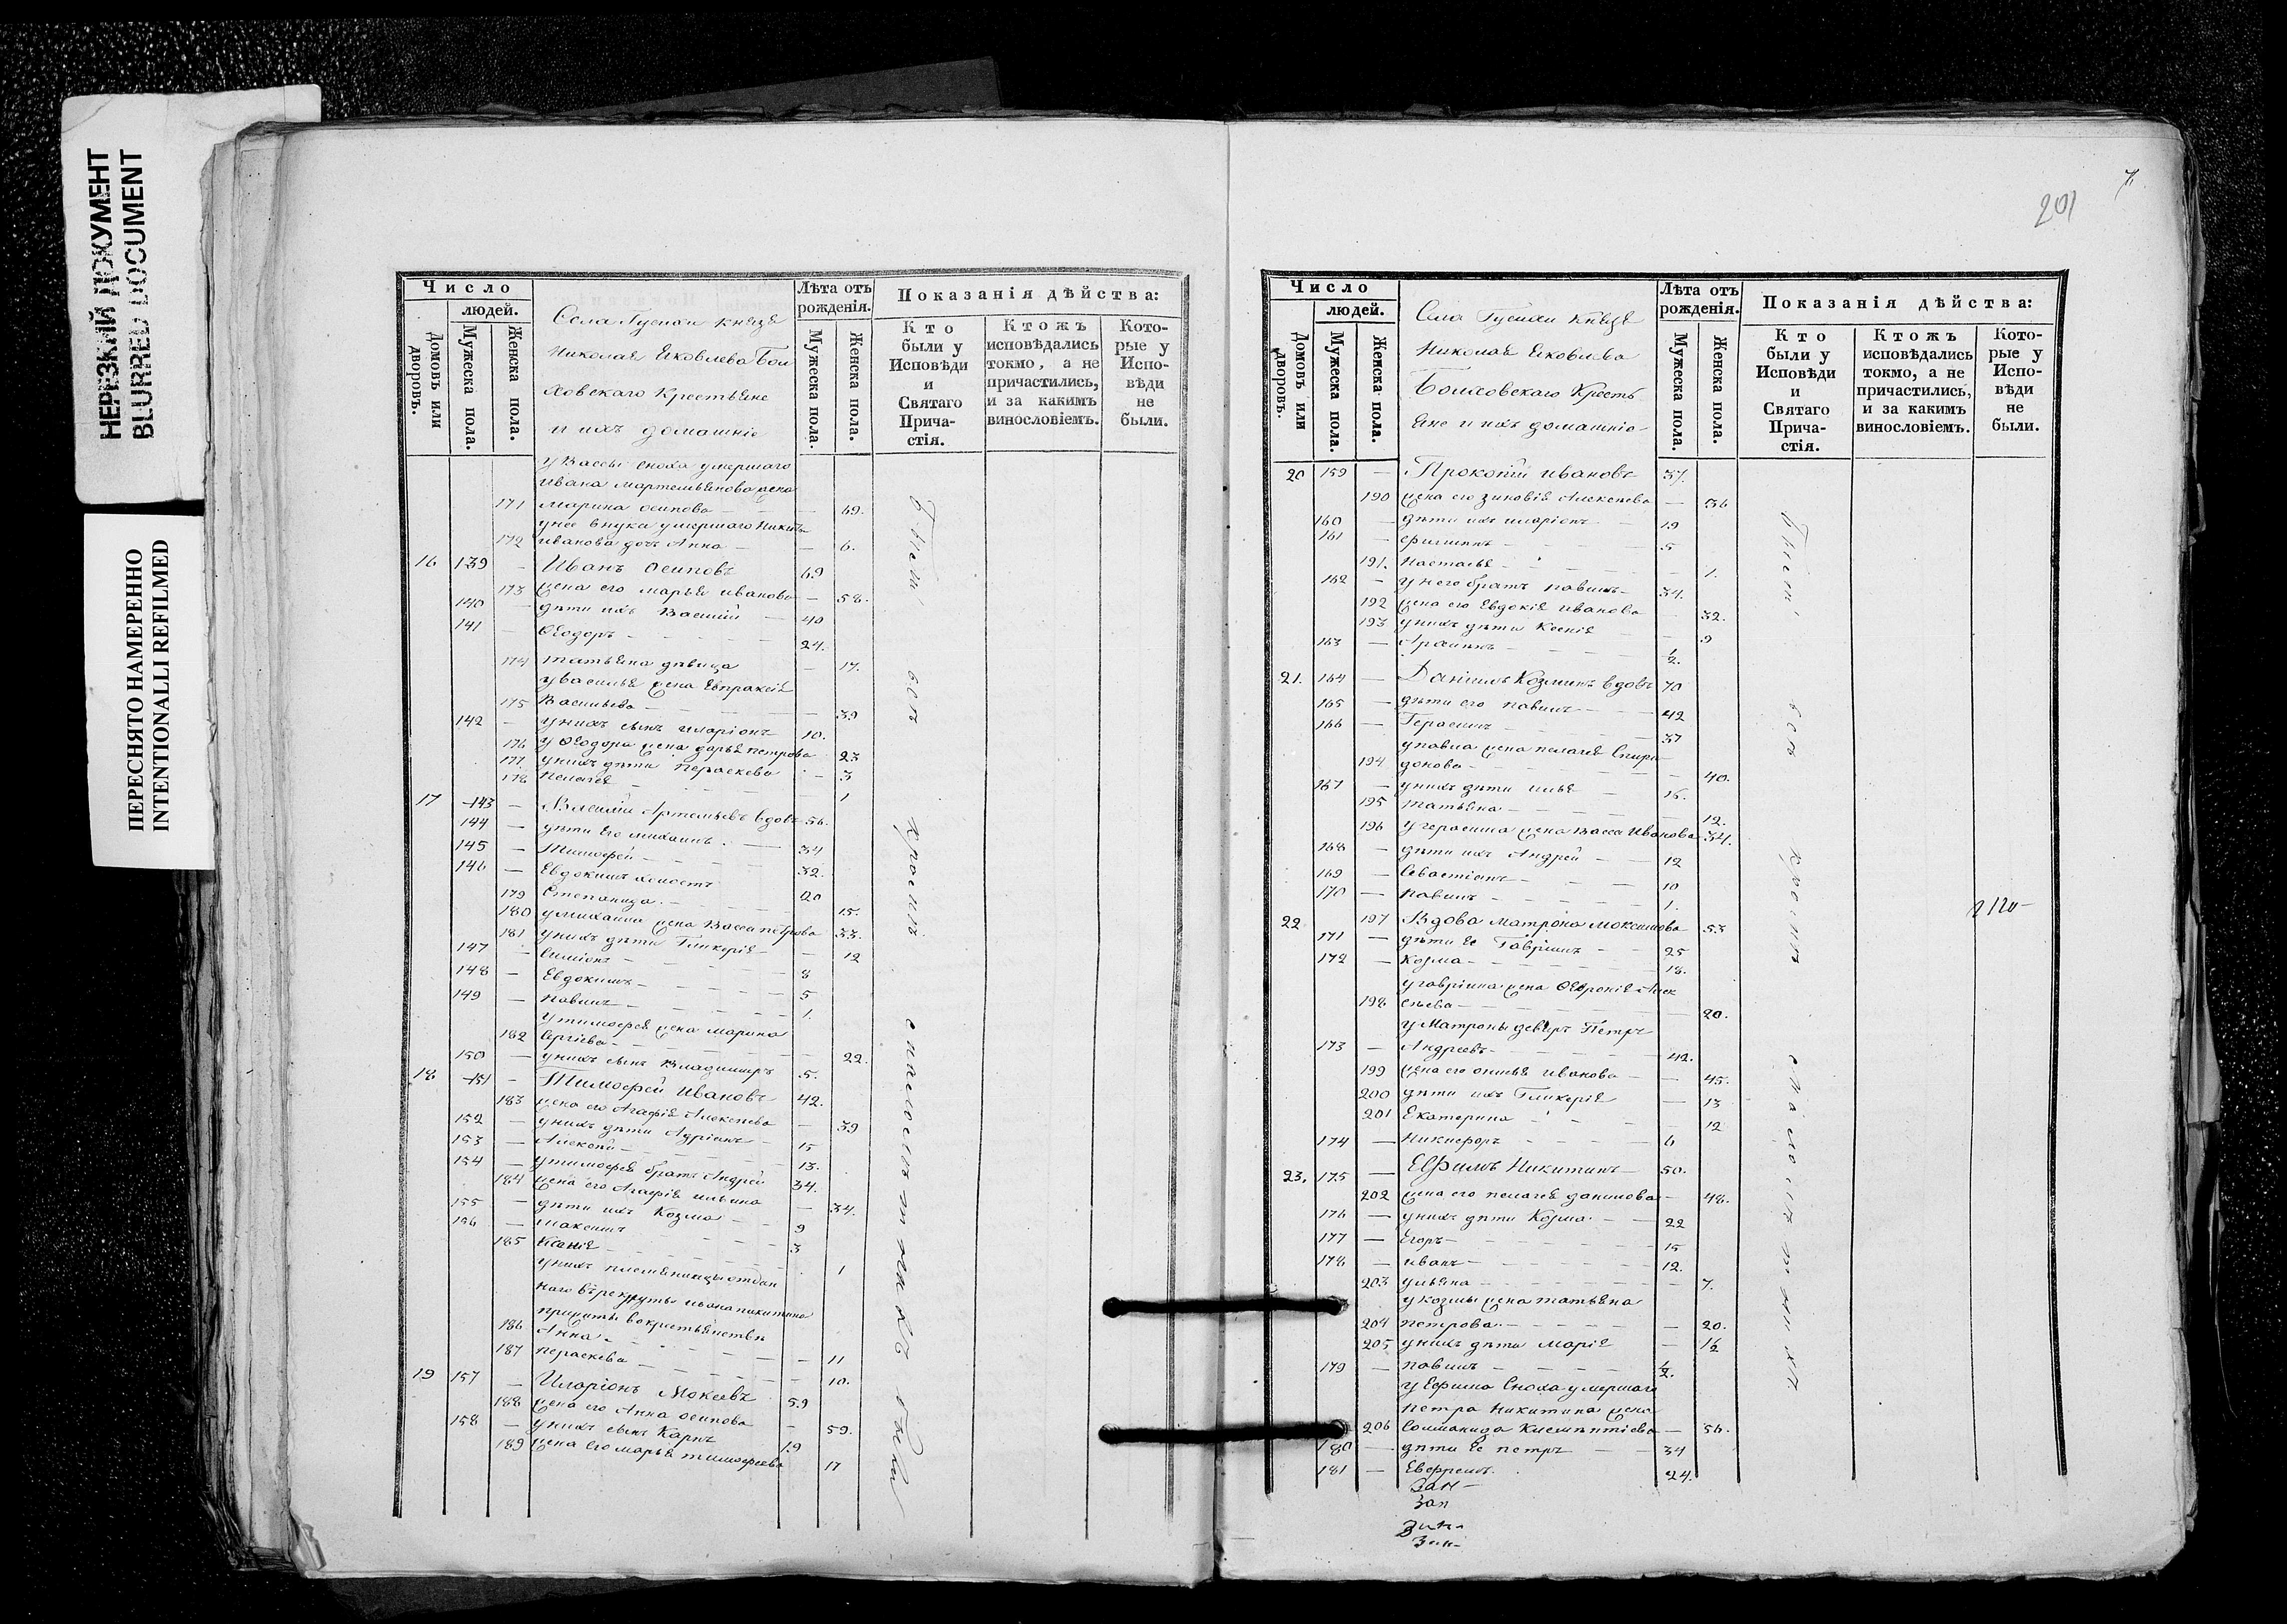 НЕРЕЗКИЙ ДОКУМЕНТ
BLURRED DOCUMENT
ПЕРЕСНЯТО НАМЕРЕННО
INTENTIONALLI REFILMED
Число
людей.
Домовъ или дворовъ.
Мужеска пола.
Женска пола.
Села князя
Николая Яковлева
Крестьяне
и ихъ домашніе
Лѣта отъ рожденія.
Мужеска пола.
Женска пола.
Показанія дѣйства:
Кто были у Исповѣди и Святаго Причастія.
Ктожъ исповѣдались токмо, а не причастились, и за какимъ винословіемъ.
Которые у Исповѣди не были.
у Вассы сноха умершаго
Ивана жена
171 Марина Осипова — — 69.
у нее внука умершаго Никиты
172 Иванова дочь Анна — — 6.
16 139 — Иванъ Осиповъ 69
173 жена его Марья Иванова — 58.
140 — дѣти ихъ Василій — 40
141 — Ѳеодоръ — 24.
174 Татьяна дѣвица — 17.
у Василья жена Евпраксія
175 Васильева — — 39
142 — у нихъ сынъ Иларіонъ 10.
176 у Ѳеодора жена Дарья Петрова 23
177 у нихъ дѣти Параскева — 3
178 Пелагея — 1
17 143 — Василій Артемьевъ вдовъ 56.
144 — дѣти его Михаилъ — 34
145 — Тимофей — 32.
146 — Евдокимъ холостъ 20
179 Степанида — 15.
180 у Михаила жена Васса Петрова 33.
181 у нихъ дѣти Гликерія — 12
147 — Симіонъ — 8
148 — Евдокимъ — 5
149 — Павилъ — 1.
у Тимофея жена Марина
182 Сергіева — — 22.
150 — у нихъ сынъ Владимиръ 5.
18 151 — Тимофей Ивановъ 42.
183 жена его Агафія Алексѣева — 39
152 — у нихъ дѣти Адріанъ — 15
153 — Алексѣй — 13.
154 — у Тимофея братъ Андрей 34.
184 жена его Агафія Ильина — 34.
155 — дѣти ихъ Козма — 9
156 — Максимъ 3
185 Ксенія — 1
у нихъ племянницы отдан
наго в рекруты Ивана Никитина
прижиты в крестьянствѣ
186 Анна — — 11
187 Параскева — — 10.
19 157 — Иларіонъ Мокеевъ 59
188 жена его Анна Осипова — 59.
158 — у нихъ сынъ Карпъ 19
189 жена его Марья Тимофеева 17
Были вси кромѣ означенныхъ
201
Число
людей.
Домовъ или дворовъ.
Мужеска пола.
Женска пола.
Села князя
Николая Яковлева
Кресть
яне и ихъ домашніе
Лѣта отъ рожденія.
Мужеска пола.
Женска пола.
Показанія дѣйства:
Кто были у Исповѣди и Святаго Причастія.
Ктожъ исповѣдались токмо, а не причастились, и за какимъ винословіемъ.
Которые у Исповѣди не были.
20 159 — Прокопій Ивановъ 37.
190 жена его Зиновія Алексѣева — 36
160 — дѣти ихъ Иларіонъ — 19
161 — Филипъ — 5
191. Наталья — 1.
162 — у него братъ Павилъ — 34.
192 жена его Евдокія Иванова 32.
193 у нихъ дѣти Ксенія — 9
163 — — ½.
21. 164 — Даніилъ Козминъ вдовъ 70
165 — дѣти его Павилъ — 42
166 — Герасимъ — 37
у Павла жена Пелагея Спири
194 донова — — 40.
167 — у нихъ дѣти Илья — 16.
195 Татьяна — — 12.
196 у Герасима жена Васса Иванова 34.
168 — дѣти ихъ Андрей — 12
169 — Севастіанъ — 10
170 — Павилъ — 1.
22. 197 Вдова Матрона Максимова 53
171 — дѣти ее Гавріилъ — 25
172 — Козма — 18.
у Гавріила жена Ѳевронія Алек
198 сѣева — — 20.
у Матроны деверь Петръ
173 — Андреевъ — 42.
199 жена его Иванова — 45.
200 дѣти ихъ Гликерія — 13
201 Екатерина — 12
174 — Никифоръ — 6
23. 175 — Ефимъ Никитинъ — 50.
202 жена его Пелагея Данилова — 48.
176 — у нихъ дѣти Козма — 22
177 — Егоръ — 15
178 — Иванъ — 12.
203 Ульяна — — 7.
у Козмы жена Татьяна
204 Петрова — — 20.
205 у нихъ дѣти Марія — 1½
179 — Павилъ — ½.
у Ефима сноха умершаго
Петра Никитина жена
206 Соломанида — 56.
180 — дѣти ее Петръ — 34
181 — Евфремъ 24.
Были вси кромѣ